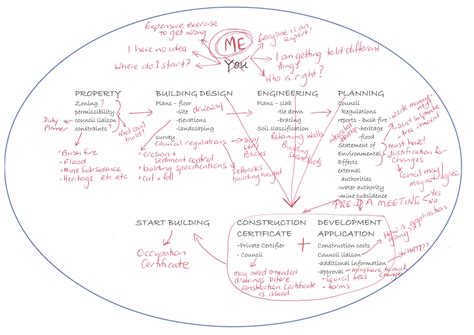 Expensive exercise
to get wrong
ME
Everyone is an
expert!
I have no idea
You
I am getting told different
things!
Where do I start?
Who is right?
PROPERTY
Zoning ?
permissibility
council liaison
constraints?
Duty
Planner
Bush fire
Flood
Mine Subsidence
Heritage etc etc
BUILDING DESIGN
Plans – floor
- site
- elevations
- landscaping
survey
council regulations
erosion +
sediment control
building specifications
cut + fill
setbacks
building height
ENGINEERING
Plans – slab
- tie down
- bracing
Soil classification
Retaining walls
Building
Structures
PLANNING
Council
Regulations
reports - bush fire
- heritage
- flood
Statement of
Environmental
Effects
external
authorities
-water authority
-mine subsidence
waste
must have!
Justification for
changes
Council may
PRE DA MEETING
Yes
No
START BUILDING
Occupation
Certificate
CONSTRUCTION
CERTIFICATE
-Private Certifier
- Council
may need amended
drawings before
Construction Certificate
is issued
+
DEVELOPMENT
APPLICATION
Construction costs
Council liaison
-additional information
-approval
- council fees
- forms
How is application
going?